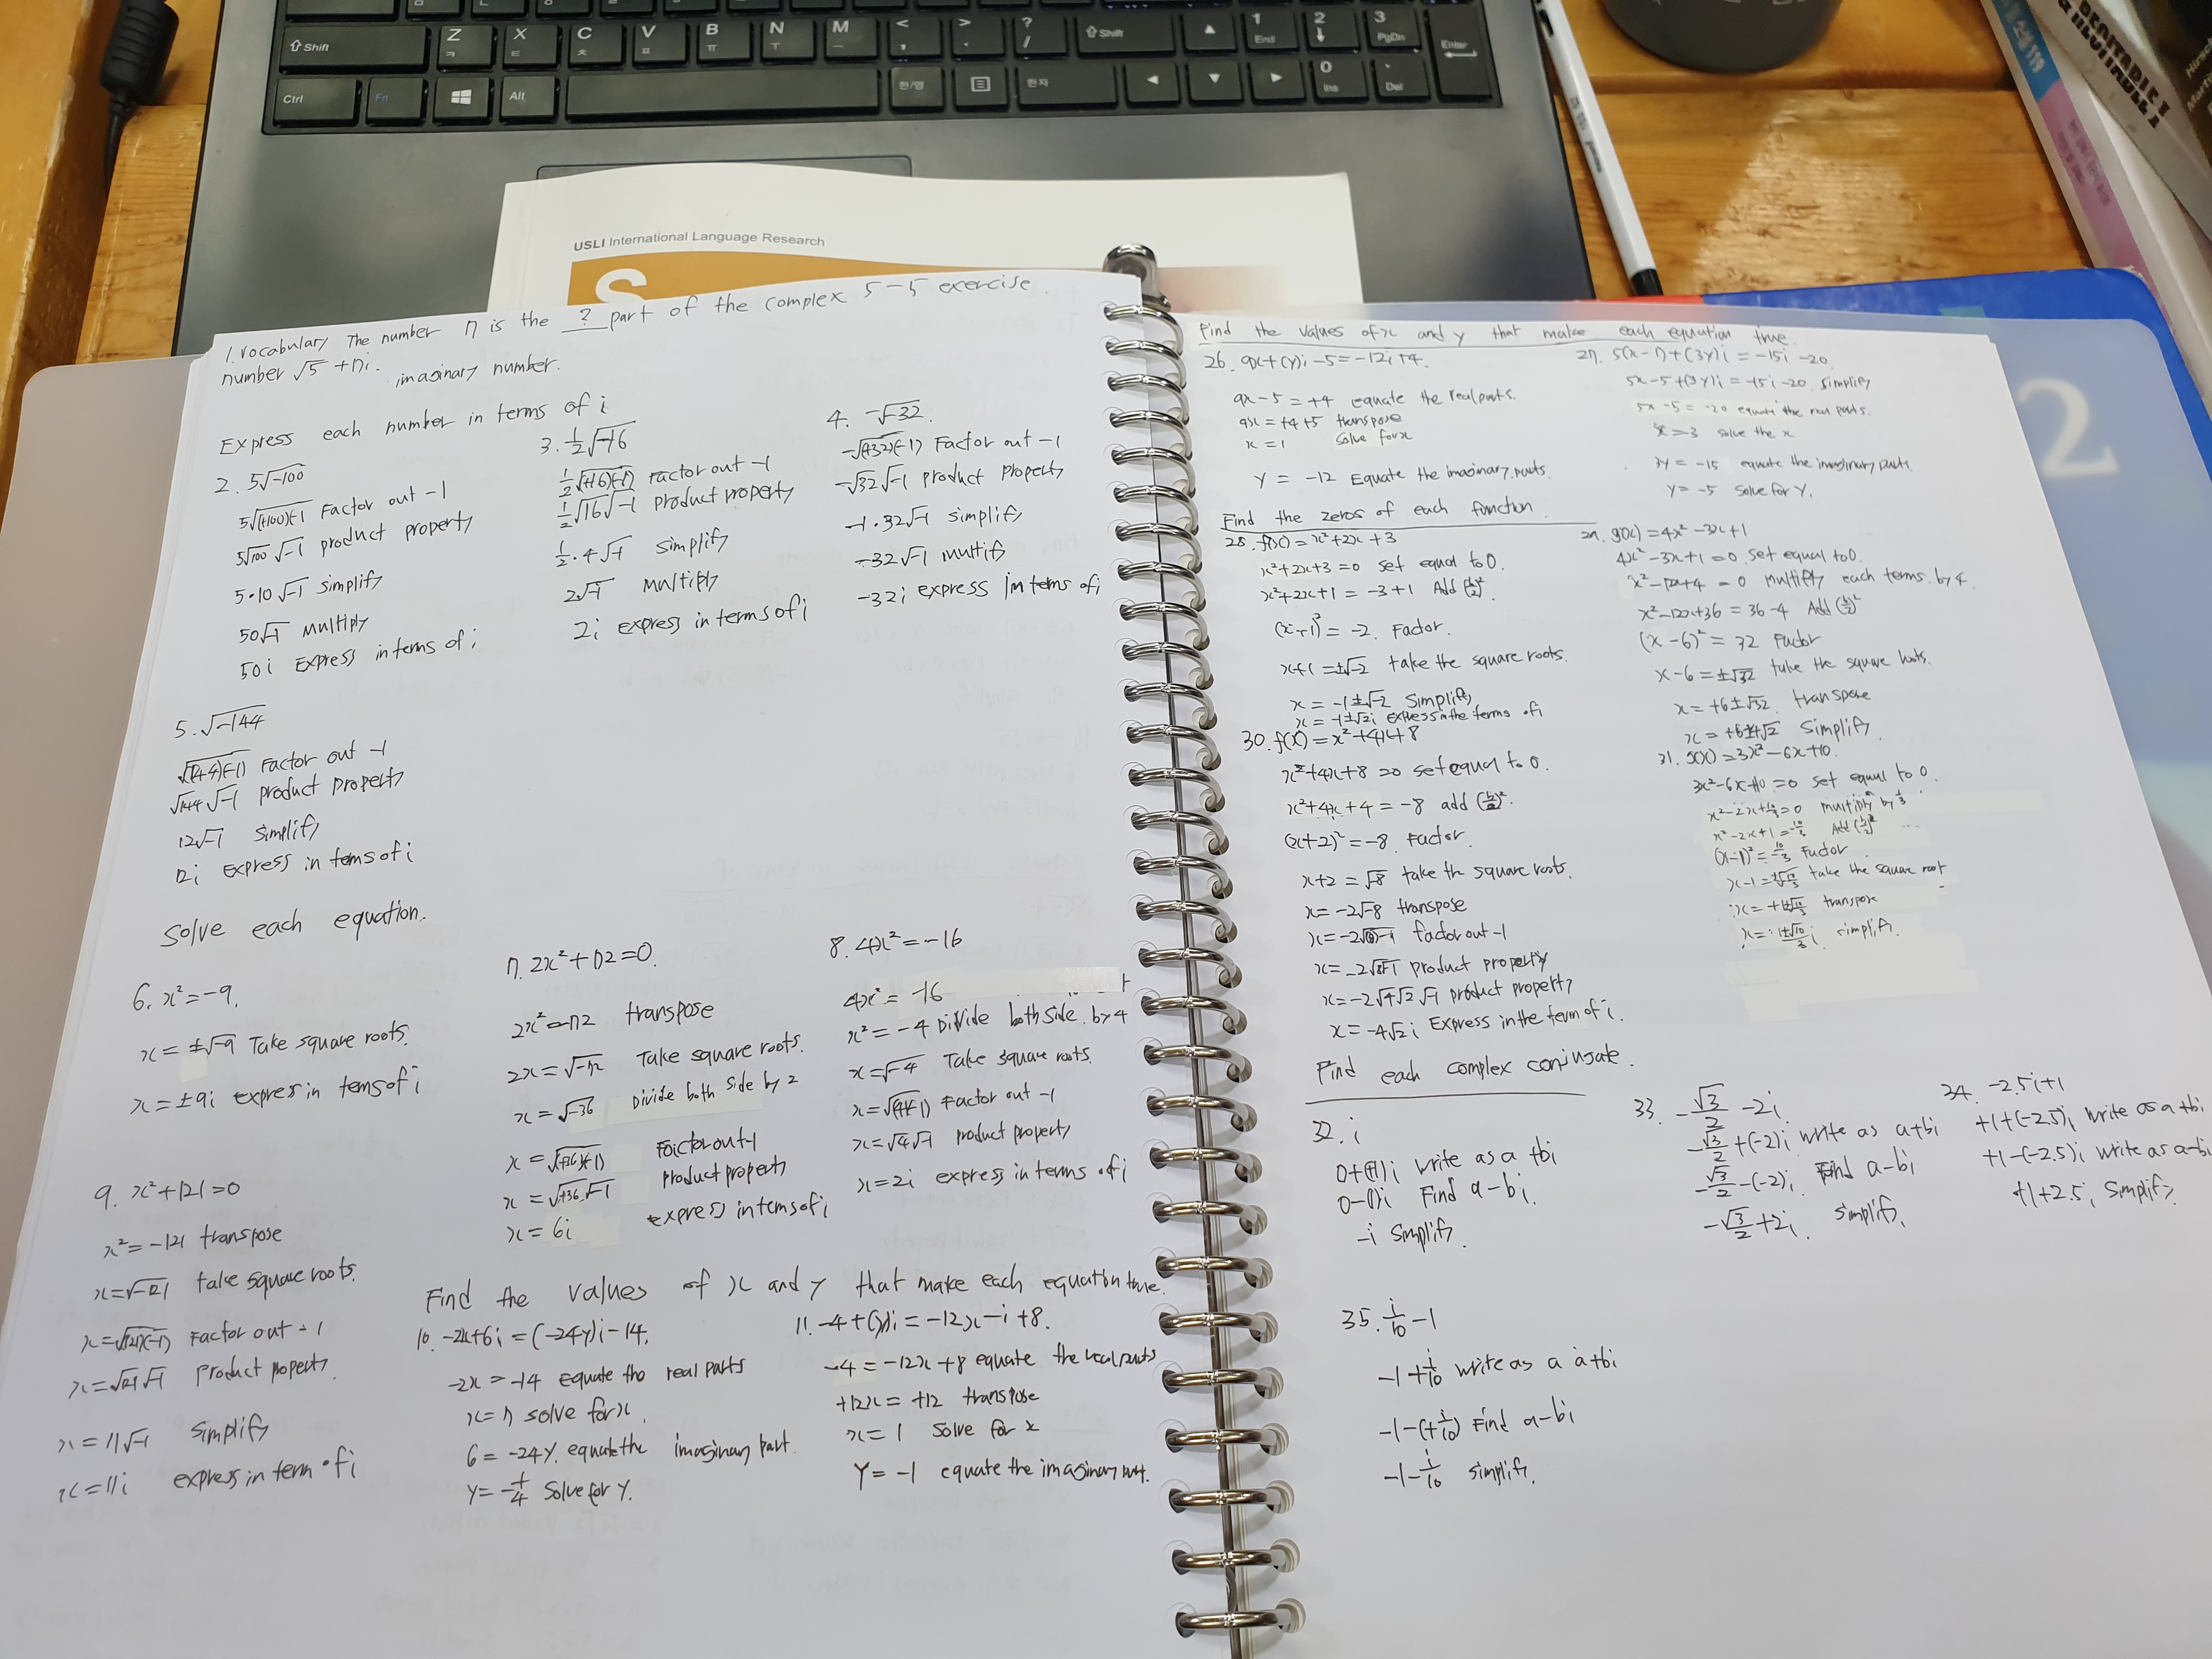 Shift
Z
X
C
V
B
N
M
<
,
>
.
?
/
Shift
1
End
2
3
PgDn
Enter
Ctrl
Fn
Alt
한/영
한자
0
Ins
Del
USLI International Language Research
S
2
1. Vocabulary The number 7 is the ? part of the complex 5-5 exercise.
number √5 + 7i. imaginary number.
Express each number in terms of i
2. 5√-100
5√(+100)(-1 Factor out -1
5√100 √-1 product property
5·10 √-1 simplify
50√-1 multiply
50i Express in terms of i
3. 1/2√-16
1/2√(+16)(-1) Factor out -1
1/2√16√-1 product property
1/2·4√-1 simplify
2√-1 multiply
2i express in terms of i
4. -√-32.
-√(+32)(-1) Factor out -1
-√32√-1 product property
-1·32√-1 simplify
-32√-1 multify
-32i express in terms of i
5. √-144
Factor out -1
√144√-1 product property
12√-1 simplify
12i express in tems of i
Solve each equation.
6. x²=-9.
x=±√-9 Take square roots.
x=±9i expres in tems of i
7. 2x²+72=0.
2x²=-72 transpose
2x=√-72 Take square roots.
x=√-36 Divide both side by 2
x=√(+36)(-1) Factor out-1
x=√+36√-1 product property
x=6i express in tems of i
8. 4x²=-16
4x²=-16
x²=-4 Divide both side by 4
x=√-4 Take square roots.
x=√(4)(-1) Factor out -1
x=√4√-1 product property
x=2i express in terms of i
9. x²+121=0
x²=-121 transpose
x=√-121 take square roots.
x=√(121)(-1) Factor out -1
x=√121√-1 product property.
x=11√-1 simplify
x=11i express in term of i
Find the values of x and y that make each equation true.
10. -2x+6i=(-24y)i-14.
-2x=-14 equate the real parts
x=7 solve for x.
6=-24y. equate the imaginary part.
y=-1/4 solve for y.
11. -4+(y)i=-12x-i+8.
-4=-12x+8 equate the real parts
+12x=+12 transpose
x=1 solve for x
y=-1 equate the imaginary part.
Find the values of x and y that make each equation true.
26. 9x+(y)i-5=-12i+4.
9x-5=+4 equate the real parts.
9x=+4+5 transpose
x=1 solve for x
y=-12 Equate the imaginary parts.
27. 5(x-1)+(3y)i=-15i-20.
5x-5+(3y)i=-15i-20. simplify
5x-5=-20 equate the real parts.
x=-3 solve the x
3y=-15 equate the imaginary parts.
y=-5 solve for y.
Find the zeros of each function.
28. f(x)=x²+2x+3
x²+2x+3=0 set equal to 0.
x²+2x+1=-3+1 Add (b/2)².
(x+1)²=-2. Factor.
x+1=±√-2 take the square roots.
x=-1±√-2 Simplify
x=-1±√2i express in the terms of i
29. g(x)=4x²-3x+1
4x²-3x+1=0. set equal to 0.
x²-12x+4=0 multiply each terms by 4.
x²-12x+36=36-4 Add (b/2)²
(x-6)²=32 Factor
x-6=±√32 take the square roots.
x=+6±√32. transpose
x=+6±4√2 simplify.
30. f(x)=x²+4x+8
x²+4x+8=0 set equal to 0.
x²+4x+4=-8 add (b/2)².
(x+2)²=-8. Factor.
x+2=√-8 take th square roots.
x=-2√-8 transpose
x=-2√(8)-1 factor out -1
x=-2√8√-1 product property
x=-2√4√2√-1 product property
x=-4√2i Express in the term of i.
31. g(x)=3x²-6x+10.
3x²-6x+10=0 set equal to 0.
multiply by 1/3
x²-2x+1=-10/3 Add (b/2)²
(x-1)²=-10/3 Factor
take the square root
transpose
simplify.
Find each complex conjugate.
32. i
0+(1)i write as a+bi
0-(1)i Find a-bi.
-i simplify.
33. -√3/2 -2i
-√3/2+(-2)i write as a+bi
-√3/2-(-2)i. Find a-bi
-√3/2+2i. simplify.
34. -2.5i+1
+1+(-2.5)i write as a+bi
+1-(-2.5)i write as a-bi
+1+2.5i simplify.
35. i/10-1
-1+i/10 write as a a+bi
-1-(+i/10) Find a-bi
-1-i/10 simplify.